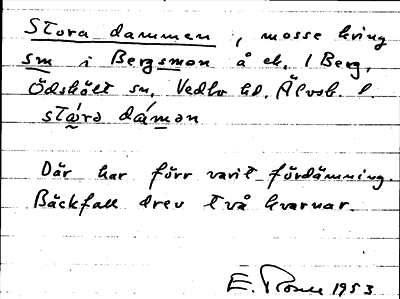 Stora dammen, mosse kring
sm i Bergsmon å ek. 1 Berg,
Ödskölt sn, Vedbo hd. Älvsb. l.
stɷ́rə dámən
Där har förr varit fördämning.
Bäckfall drev två kvarnar.
E. 1953